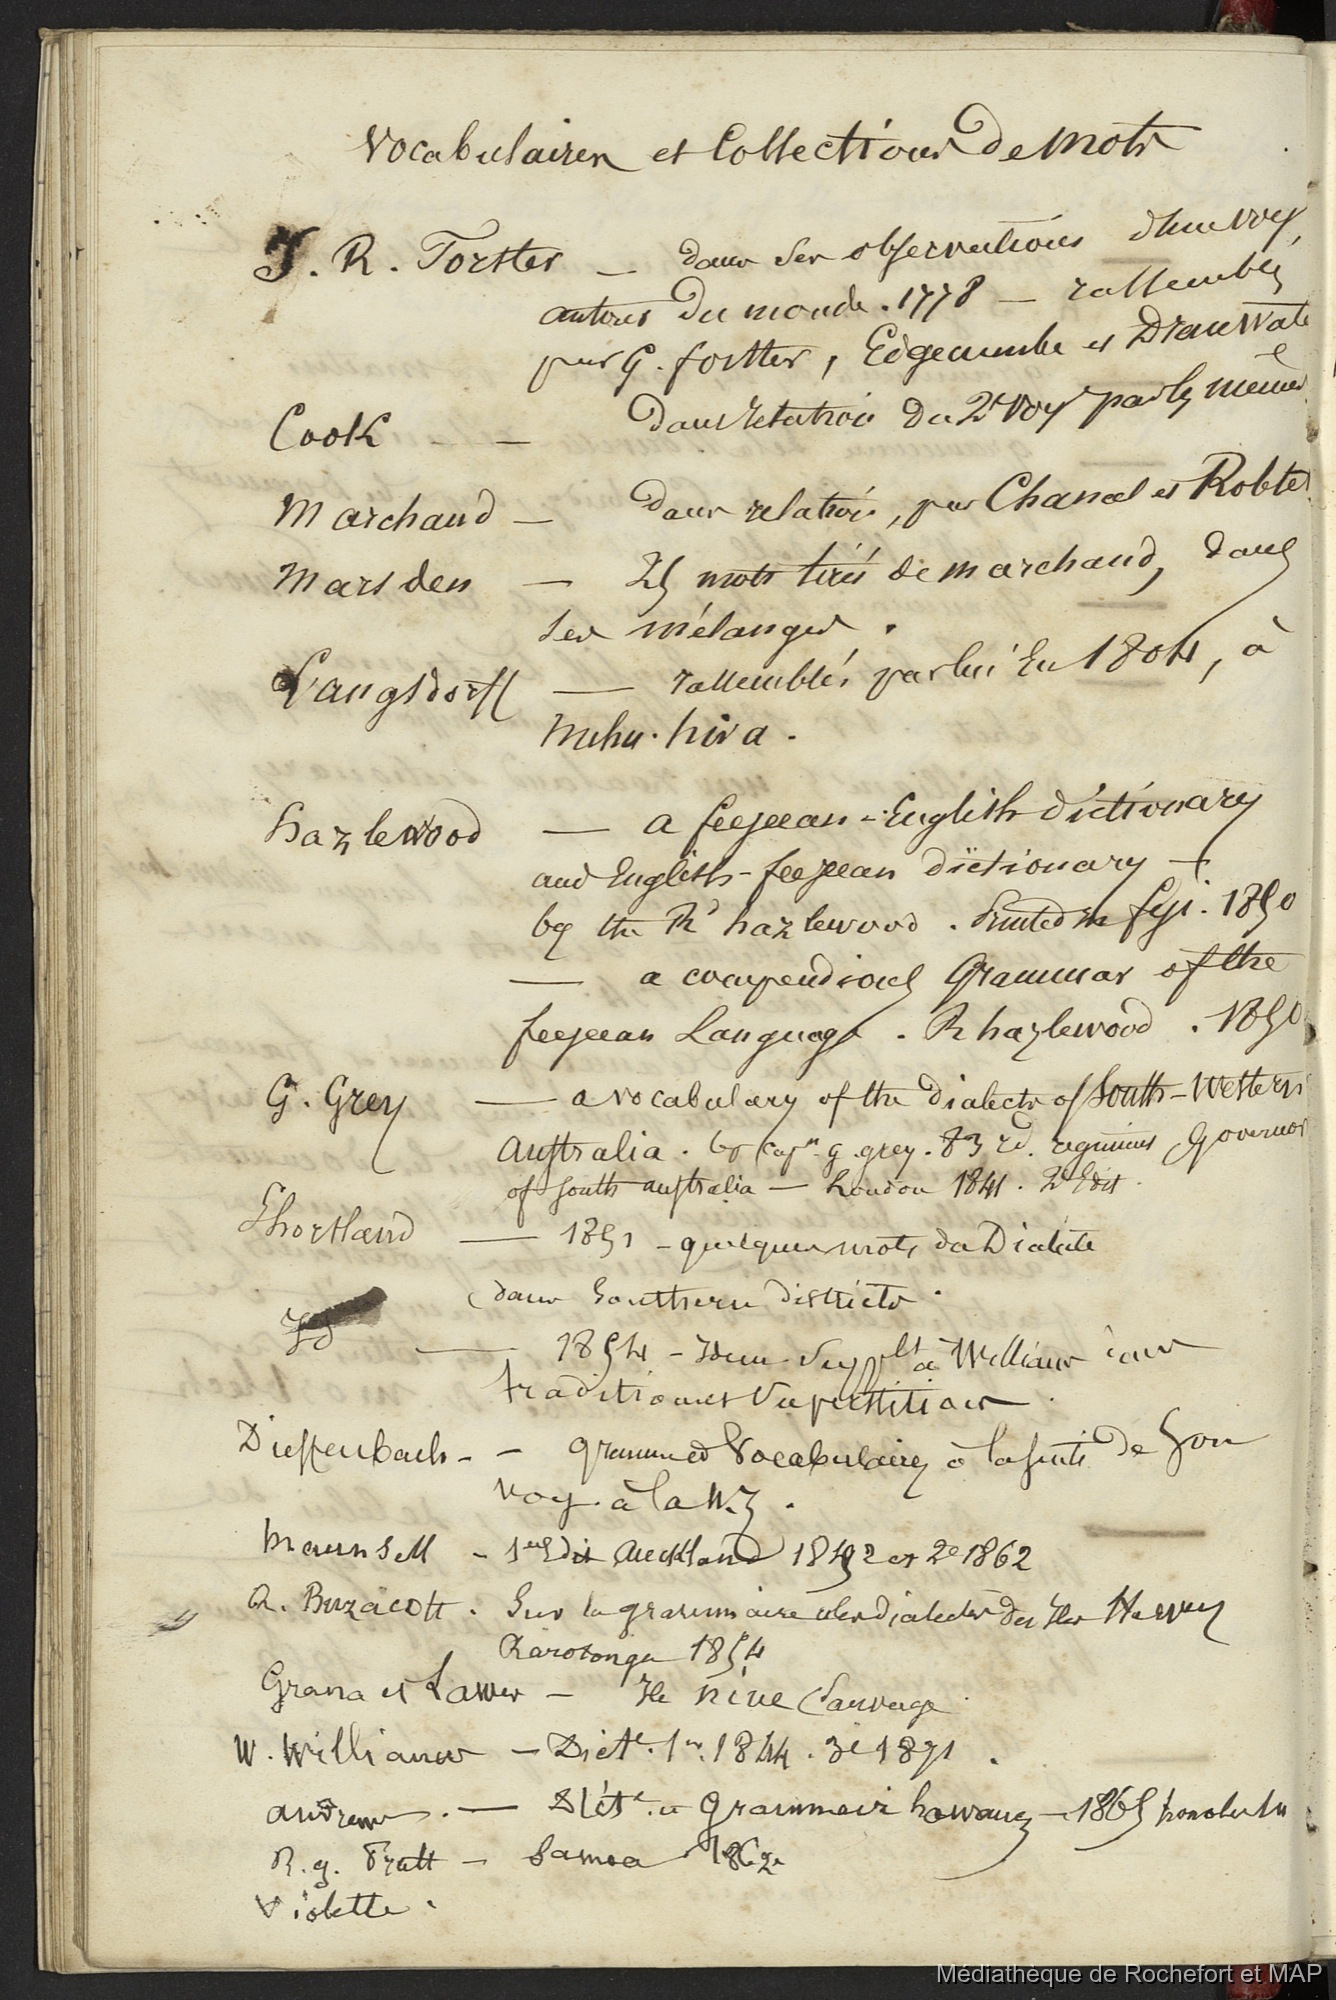 Vocabulaires et Collections de mots
J. R. Forster — dans ses observations d'un voy.
autour du monde. 1778 — rassemblés
par G. forster, Edgecumbe et Drawwate
Cook — — dans relation du 2e voy par les mêmes
Marchand — dans relation, par Chanal et Roblet
Marsden — Les mots tirés de marchand, dans
ses mélanges.
Langsdorff — rassemblés par lui en 1804, à
Nuhu-hiva.
hazlewood — a feejeean-English dictionary
and English-feejeean dictionary —
by the Rd hazlewood. Printed in feji. 1850
— a compendious Grammar of the
feejeean Language. R hazlewood. 1850
G. Grey — a vocabulary of the dialects of South-Western
Australia. by Capn. g. grey. 83rd. regiment Governor
of south australia — London 1841. 2e Edit.
Shortland — 1851 - quelques mots du Dialecte
dans Southern districts.
Id — 1854 - Idem. Supplt à Williams dans
traditions et Superstitions.
Dieffenbach - - gramm. et Vocabulaire à la suite de Son
voy. à la N. Z.
Maunsell - 1re Edit Auckland 1842 et 2e 1862
A. Buzacott. Sur la grammaire des dialectes des Iles Hervey
Rarotonga 1854
Grana et Lawes — Ile Niue (Sauvage
W. Williams — Dicte. 1er. 1844. 3e 1871.
andrews. — Dicte. et Grammaire hawaïen — 1865 honolulu
R. g. Pratt — Samoa 1862
Violette.
Médiathèque de Rochefort et MAP